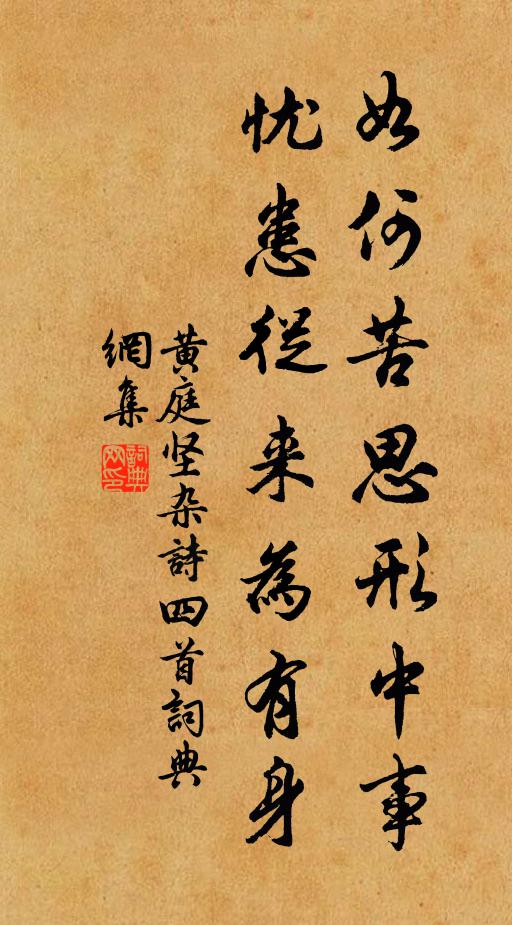 如何苦思形中事
忧患從来為有身
黄庭坚杂詩四首詞典
網集
詞典網印